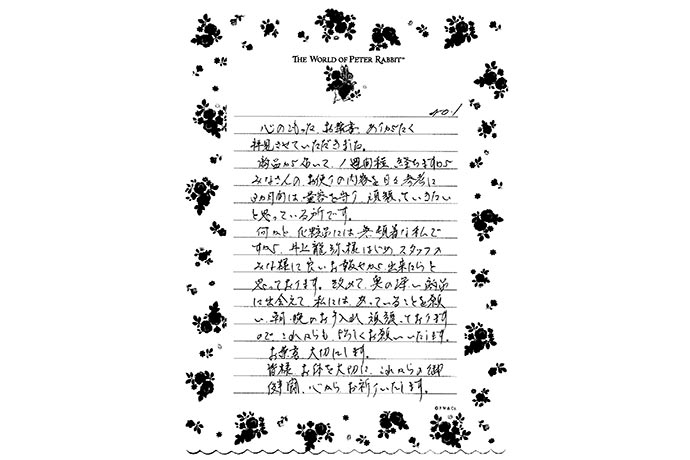 THE WORLD OF PETER RABBIT™
no.1
心のこもった、お葉書、ありがたく
拝見させていただきました。
商品から届いて、1週間程、経ちますから
みなさんの、お便りの内容を見る参考に
3ヵ月間は、量容を守り、頑張っていきたい
と思っている所です。
何かと、化粧品には、無頓着な私で
すから、井上龍弥様はじめスタッフの
みな様に良いお報せが出来たらと
思っております。改めて、奥の深い商品
に出会えて、私には、あっていることを願
い、朝、晩のお手入れ、頑張っております
ので、これからも、よろしくお願いいたします。
お葉書、大切にします。
皆様、お体を大切に、これからの御
健闘、心から、お祈りいたします。
©F.W.& Co.